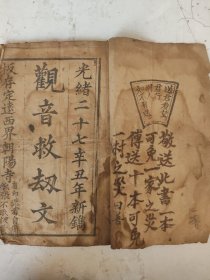 光緒二十七辛丑年新鐫
觀音救劫文
板存定遠西界朝陽寺
敬送此書一本
可免一家之災
傳送十本可免
一村之災